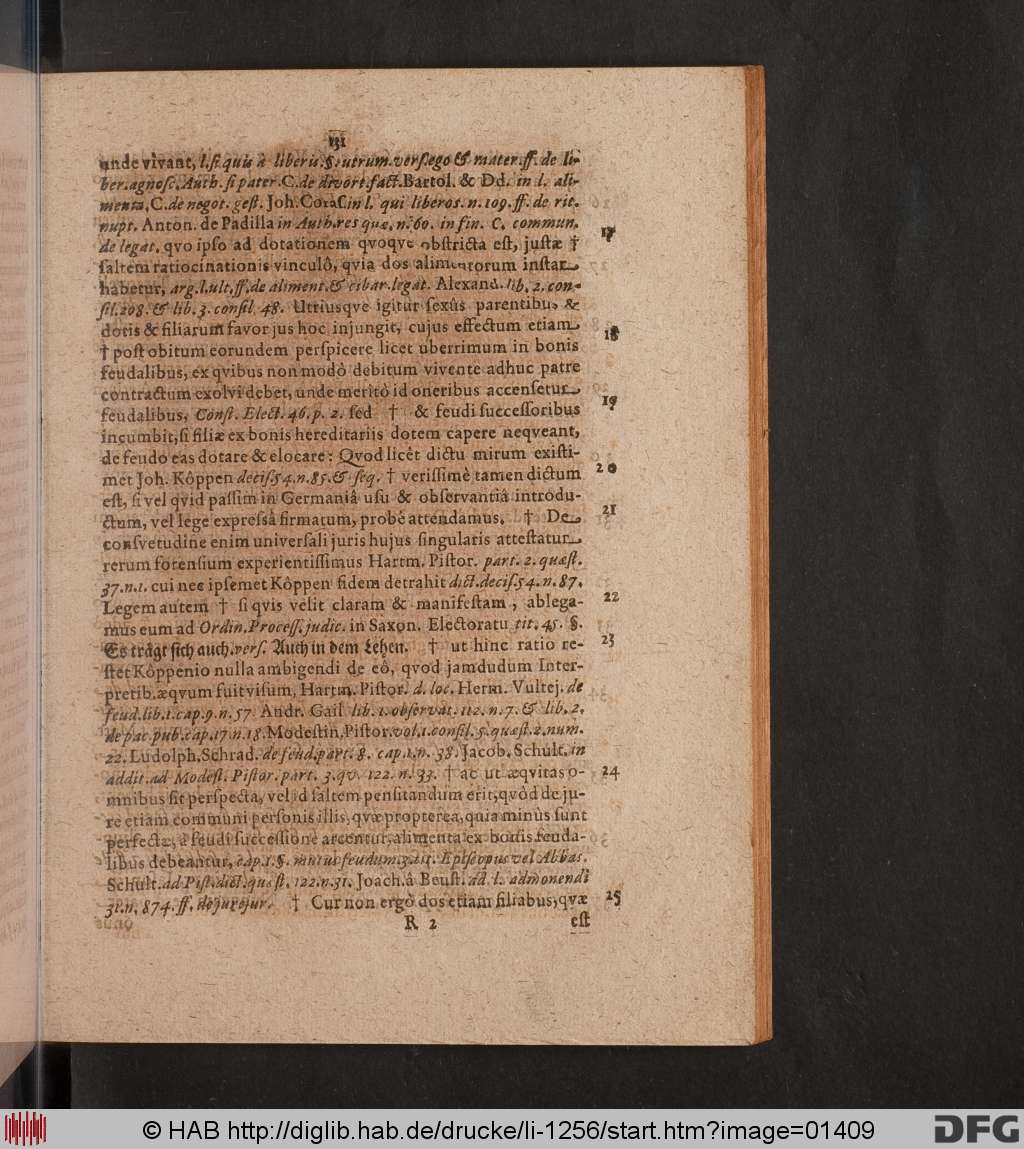 131
unde vivant, l. si quis à liberis. §. utrum. vers. ego & mater. ff. de li-
ber. agnosc. Auth. si pater. C. de divort. fact. Bartol. & Dd. in l. ali-
menta, C. de negot. gest. Joh. Coras. in l. qui liberos. n. 109. ff. de rit.
nupt. Anton. de Padilla in Auth. res quæ, n. 60. in fin. C. commun.
de legat. qvo ipso ad dotationem qvoqve obstricta est, justæ † 17
saltem ratiocinationis vinculô, qvia dos alimentorum instar
habetur, arg. l. ult. ff. de aliment. & cibar. legat. Alexand. lib. 2. con-
sil. 208. & lib. 3. consil. 48. Utriusqve igitur sexûs parentibus &
dotis & filiarum favor jus hoc injungit, cujus effectum etiam 18
† post obitum eorundem perspicere licet uberrimum in bonis
feudalibus, ex qvibus non modò debitum vivente adhuc patre
contractum exolvi debet, unde meritò id oneribus accensetur 19
feudalibus, Const. Elect. 46. p. 2. sed † & feudi successoribus
incumbit, si filiæ ex bonis hereditariis dotem capere neqveant,
de feudo eas dotare & elocare: Qvod licèt dictu mirum existi-
met Joh. Kôppen decis. 54. n. 85. & seq. † verissimè tamen dictum 20
est, si vel qvid passim in Germaniâ usu & observantiâ introdu-
ctum, vel lege expressâ firmatum, probè attendamus. † De 21
consvetudine enim universali juris hujus singularis attestatur
rerum forensium experientissimus Hartm. Pistor. part. 2. quæst.
37. n. 1. cui nec ipsemet Kôppen fidem detrahit dict. decis. 54. n. 87.
Legem autem † si qvis velit claram & manifestam, ablega- 22
mus eum ad Ordin. Process. judic. in Saxon. Electoratu tit. 45. §.
Es trågt sich auch. vers. Auch in dem Lehen. † ut hinc ratio re- 23
stet Kôppenio nulla ambigendi de eô, qvod jamdudum Inter-
pretib. æqvum fuit visum, Hartm. Pistor. d. loc. Herm. Vultej. de
feud. lib. 1. cap. 9. n. 57. Andr. Gail. lib. 1. observat. 112. n. 7. & lib. 2.
de pac. pub. cap. 17. n. 18. Modestin. Pistor. vol. 1. consil. 5. quæst. 2. num.
22. Ludolph. Schrad. de feud. part. 8. cap. 1. n. 38. Jacob. Schult. in
addit. ad Modest. Pistor. part. 3. qv. 122. n. 33. † ac ut æqvitas o- 24
mnibus sit perspecta, vel id saltem pensitandum erit, qvòd de ju-
re etiam communi personis illis, qvæ propterea, quia minùs sunt
perfectæ, à feudi successione arcentur, alimenta ex bonis feuda-
libus debeantur, cap. 1. §. mutus feudum. 3. tit. Episcopus vel Abbas.
Schult. ad Pist. dict. quæst. 122. n. 31. Joach. â Beust. ad l. admonendi
31. n. 874. ff. de jurejur. † Cur non ergò dos etiam filiabus, qvæ 25
R 2 est
© HAB http://diglib.hab.de/drucke/li-1256/start.htm?image=01409
DFG